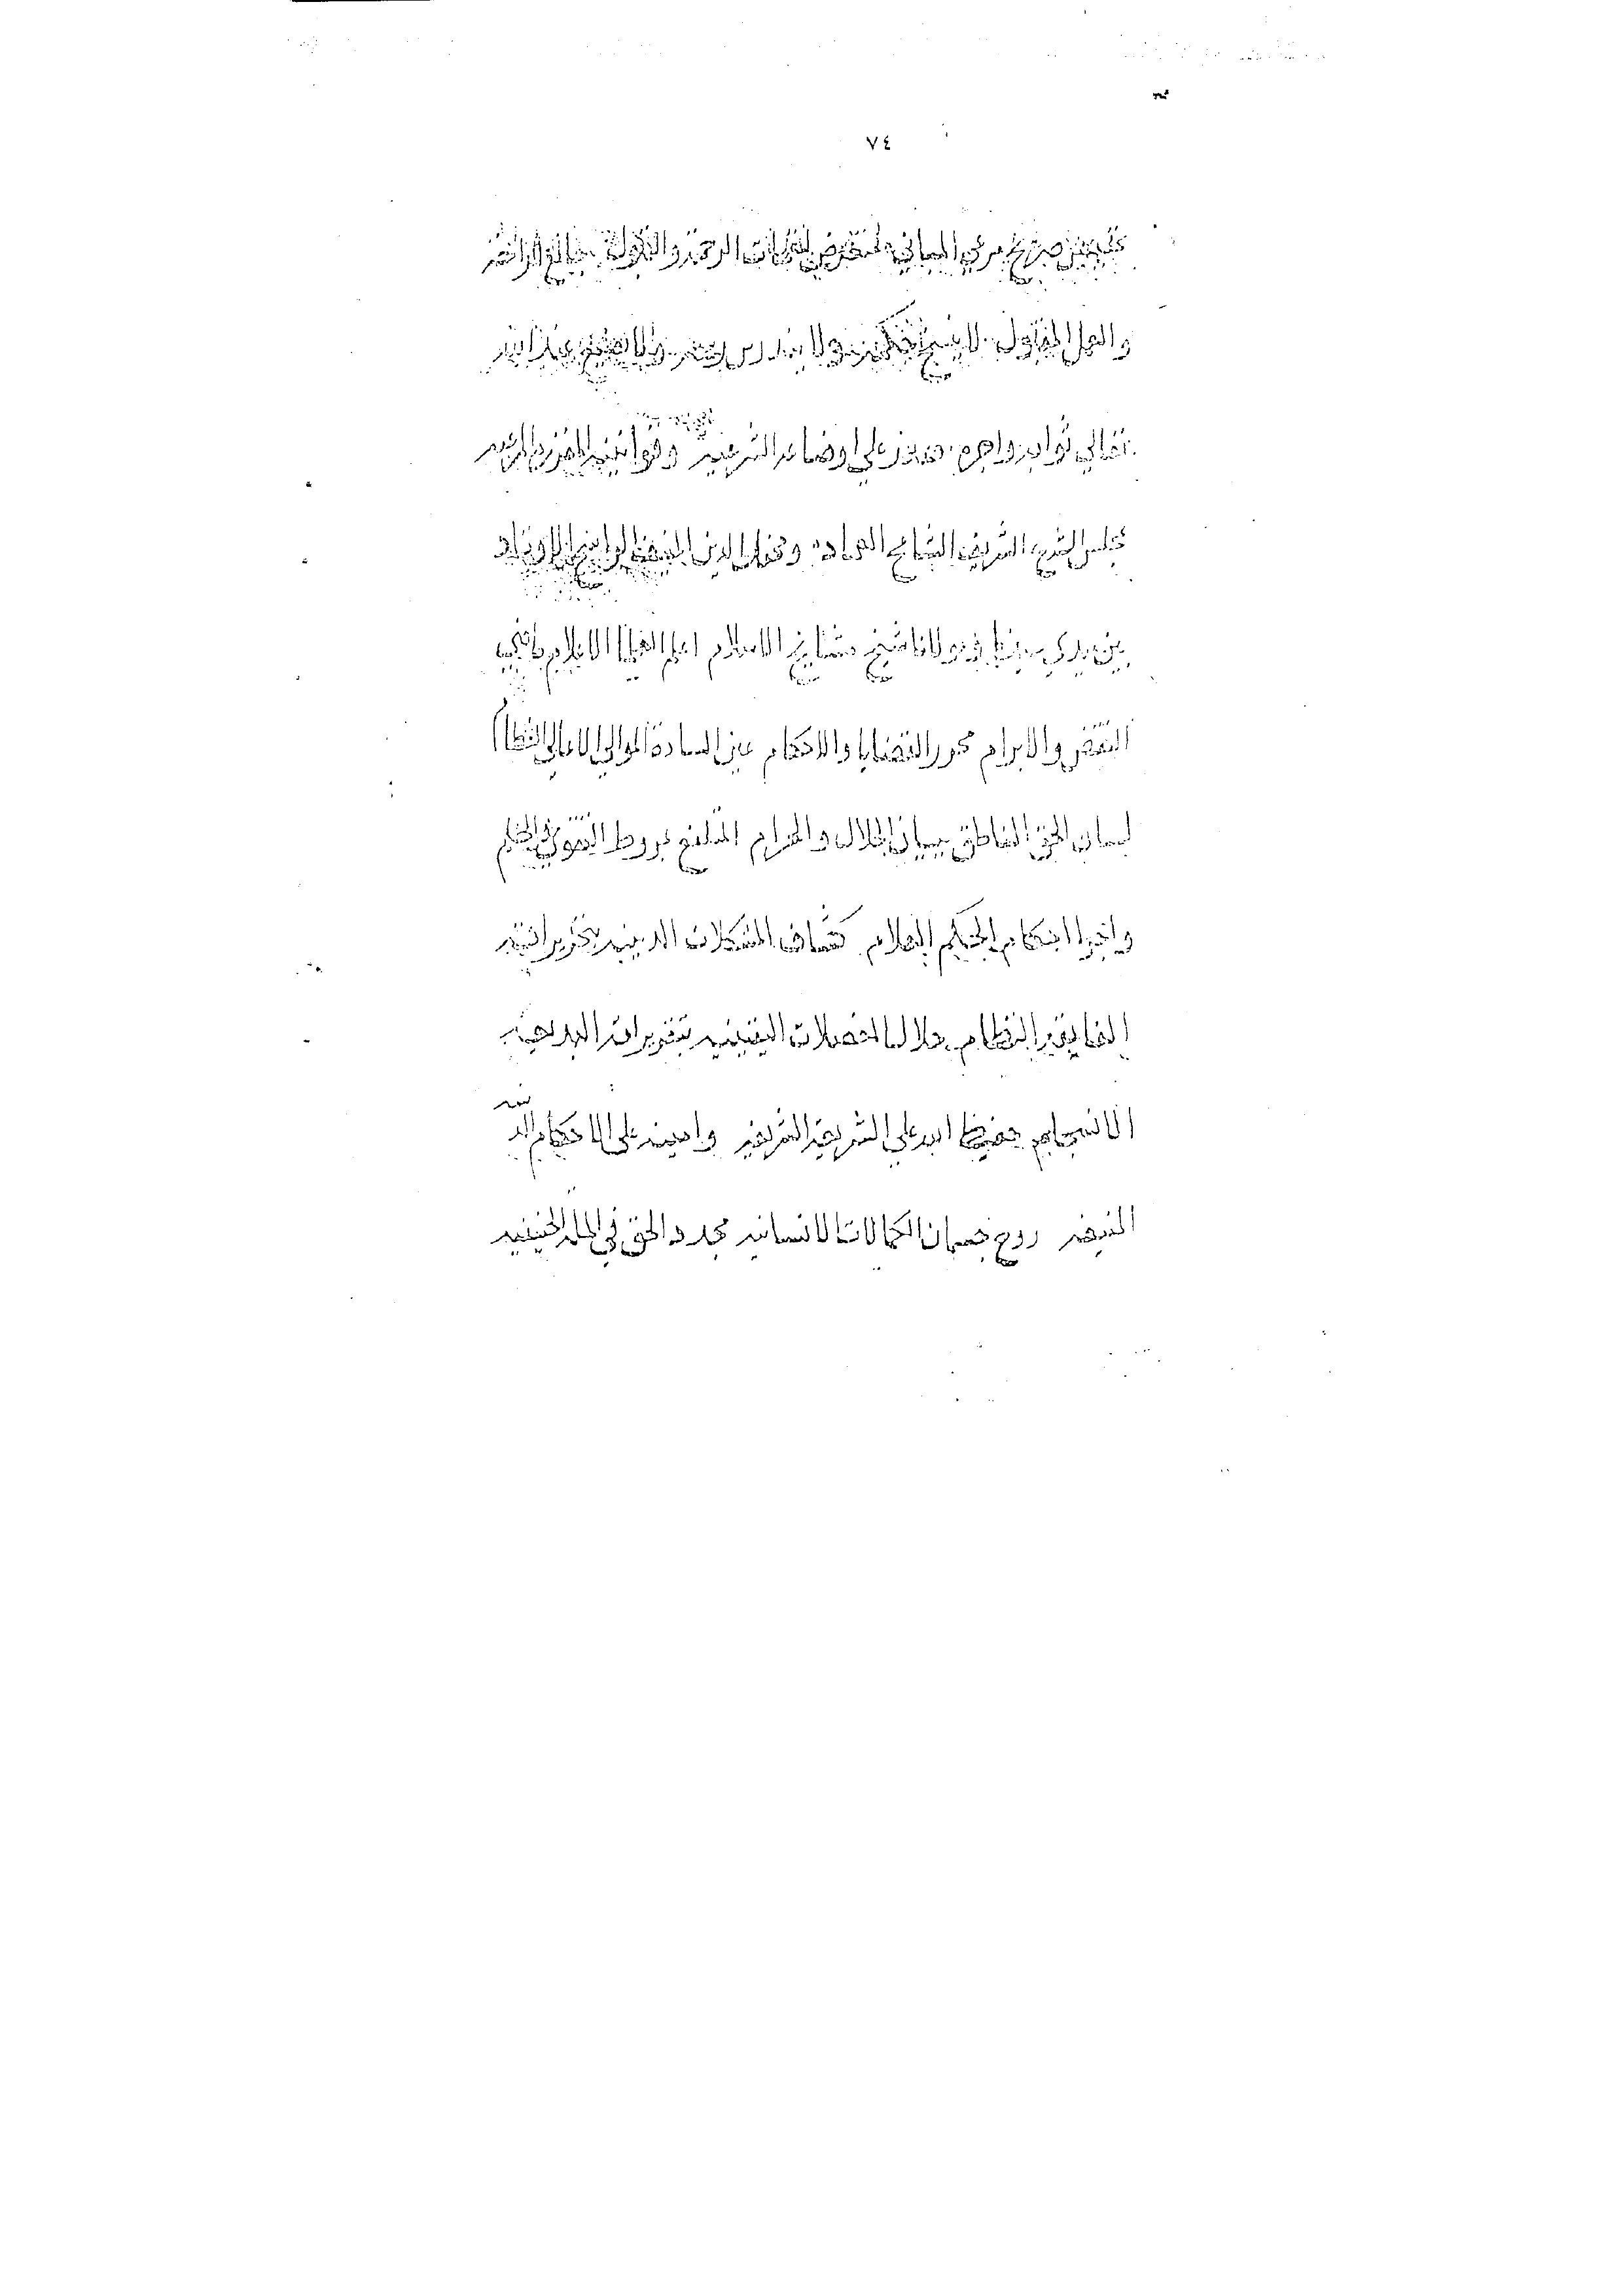 ٧٤
صريح مرعي المباني متعرض لنفحات الرحمة والقبول
والعمل المقبول لا ينسخ حكمه ولا يندرس رسمه ولا يضيع عند الله
تعالى ثوابه واجره صدر على اوضاعه الشرعيه وقوانينه المحررة المرعيه
بمجلس الشرع الشريف الشامخ العماد ومحفل الدين المنيف الراسخ الاوتاد
بين يدي سيدنا ومولانا شيخ مشايخ الاسلام اعلم العلما الاعلام
النقض والابرام محرر القضايا والاحكام عين السادة الموالي الاعالي
لسان الحق الناطق ببيان الحلال والحرام المتلفع بروط التقوى
واجرا احكام الحكيم العلام كشاف المشكلات الدينيه بتحريراته
الفايقة النظام حلال المعضلات اليقينيه بتقريراته البديعه
الانسجام حفيظ الله على الشريعة الشريفه وامينه على الاحكام الدينيه
المنيفه روح جسمان الكمالات الانسانيه مجدد الحق في الملة الحنيفيه